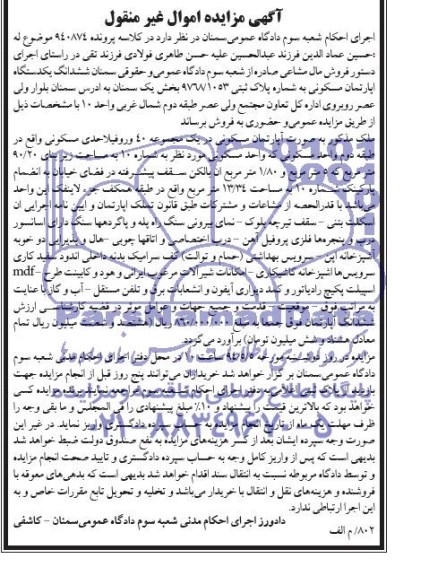 آگهی مزایده اموال غیر منقول
اجرای احکام شعبه سوم دادگاه عمومی سمنان در نظر دارد در کلاسه پرونده ۹۴۰۸۷۴ موضوع له
:حسین عماد الدین فرزند عبدالحسین علیه حسن طاهری فولادی فرزند تقی در راستای اجرای
دستور فروش مال مشاعی صادره از شعبه سوم دادگاه عمومی و حقوقی سمنان ششدانگ یکدستگاه
آپارتمان مسکونی به شماره پلاک ثبتی ۹۷۶۸/۱۰۵۳ بخش یک سمنان به ادرس سمنان بلوار ولی
عصر روبروی اداره کل تعاون مجتمع ولی عصر طبقه دوم شمال غربی واحد ۱۰ با مشخصات ذیل
از طریق مزایده عمومی و حضوری به فروش برساند
ملک مذکور به صورت آپارتمان مسکونی در یک مجموعه ۴۰ و واحدی مسکونی واقع در
طبقه دوم واحد مسکونی که واحد مسکونی مورد نظر به شماره ۱۰ به مساحت زیر بنای ۹۰/۲۰
متر مربع که ۵ متر مربع و ۱/۸۰ متر مربع آن بالکن سقف پیشرفته در فضای خیابان به انضمام
پارکینگ شماره ۱۰ به مساحت ۱۳/۳۴ متر مربع واقع در طبقه همکف جزء لاینفک این واحد
میباشد با قدرالحصه از مشاعات و مشترکات طبق قانون تملک اپارتمان و ایین نامه اجرایی ان
اسکلت بتنی - سقف تیرچه بلوک - نمای بیرونی سنگ راه پله و پاگردها سنگ دارای آسانسور
درب و پنجره‌ها فلزی پروفیل آهن - درب اختصاصی و اتاقها چوبی -هال و پذیرایی دو خوابه
آشپزخانه اپن - سرویس بهداشتی (حمام و توالت) کف سرامیک بدنه داخلی اندود سفید کاری
سرویس‌ها اشپزخانه کاشیکاری - امکانات شیرآلات مرغوب ایرانی و هود و کابینت طرح mdf-
اسپیلت پکیج رادیاتور و کمد دیواری آیفون و انشعابات برق و تلفن مستقل - آب و گاز با عنایت
به مراتب فوق - موقعیت - قدمت و جمیع جهات و عوامل موثر در قضیه کارشناسی ارزش
ششدانگ آپارتمان فوق جمعا به مبلغ ۸۶۰/۰۰۰/۰۰۰ ریال (هشتصد و شصت میلیون ریال تمام
معادل هشتاد و شش میلیون تومان) برآورد می‌گردد
مزایده در روز مورخه ساعت ۱۰ در محل دفتر اجرای احکام مدنی شعبه سوم
دادگاه عمومی سمنان بر گزار خواهد شد خریداران می‌توانند پنج روز قبل از انجام مزایده جهت
بازدید از پلاک ثبتی اعلامی به دفتر اجرای احکام شعبه سوم مراجعه نمایند برنده مزایده کسی
خواهد بود که بالاترین قیمت را پیشنهاد و ۱۰٪ مبلغ پیشنهادی را فی المجلس و ما بقی وجه را
ظرف مهلت یک ماه از تاریخ انجام مزایده به حساب سپرده دادگستری واریز نماید. در غیر این
صورت وجه سپرده ایشان بعد از کسر هزینه‌های مزایده به نفع صندوق دولت ضبط خواهد شد
بدیهی است که پس از واریز کامل وجه به حساب سپرده دادگستری و تایید صحت انجام مزایده
و توسط دادگاه مربوطه نسبت به انتقال سند اقدام خواهد شد بدیهی است که بدهی‌های معوقه با
فروشنده و هزینه‌های نقل و انتقال با خریدار می‌باشد و تخلیه و تحویل تابع مقررات خاص و به
این اجرا ارتباطی ندارد.
دادورز اجرای احکام مدنی شعبه سوم دادگاه عمومی سمنان - کاشفی
۸۰۲/ م الف